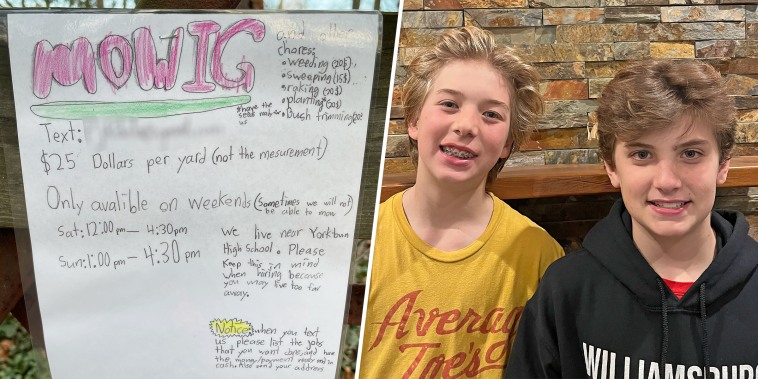 MOWIG
and other
chores:
• weeding (20$)
• sweeping (15$)
• raking (20$)
• planting* (20$)
• bush trimming (20$)
*have the
seeds ready for
us
Text:
$25 Dollars per yard (not the mesurement)
Only avalible on weekends (sometimes we will not
be able to mow)
Sat: 12:00 pm — 4:30pm
Sun: 1:00 pm — 4:30 pm
we live near Yorktown
High School. Please
Keep this in mind
when hiring because
you may live too far
away.
Notice: when you text
us please list the jobs
that you want done, and have
the money/payment ready and in
cash. Also send your address
Average
Joe's
WILLIAMSBURG